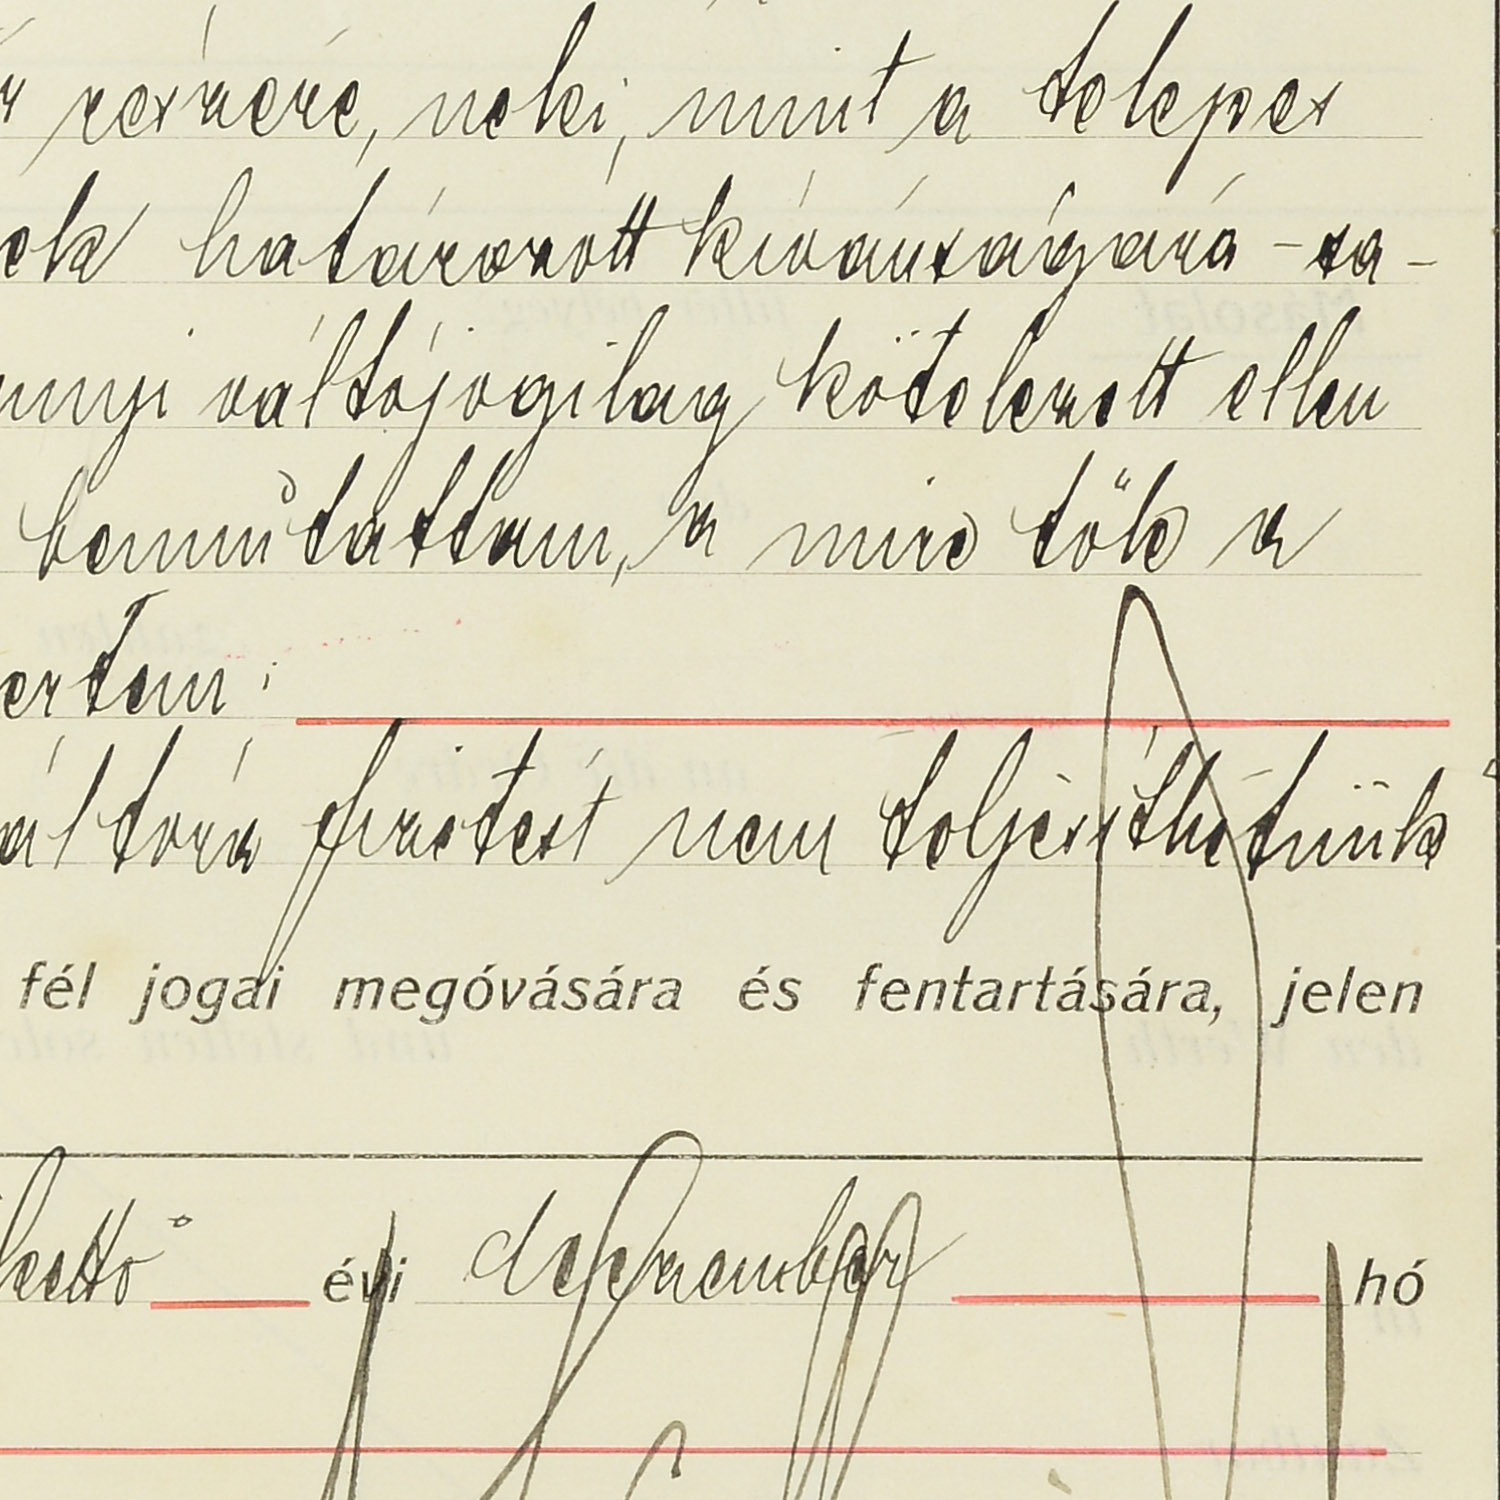 részére, neki, mint a telepes
határozott kívánságára – va-
váltójogilag kötelezett ellen
bemutattam, a mire tőle a
fizetést nem teljesíthetünk
fél jogai megóvására és fentartására, jelen
kettő évi deczember hó